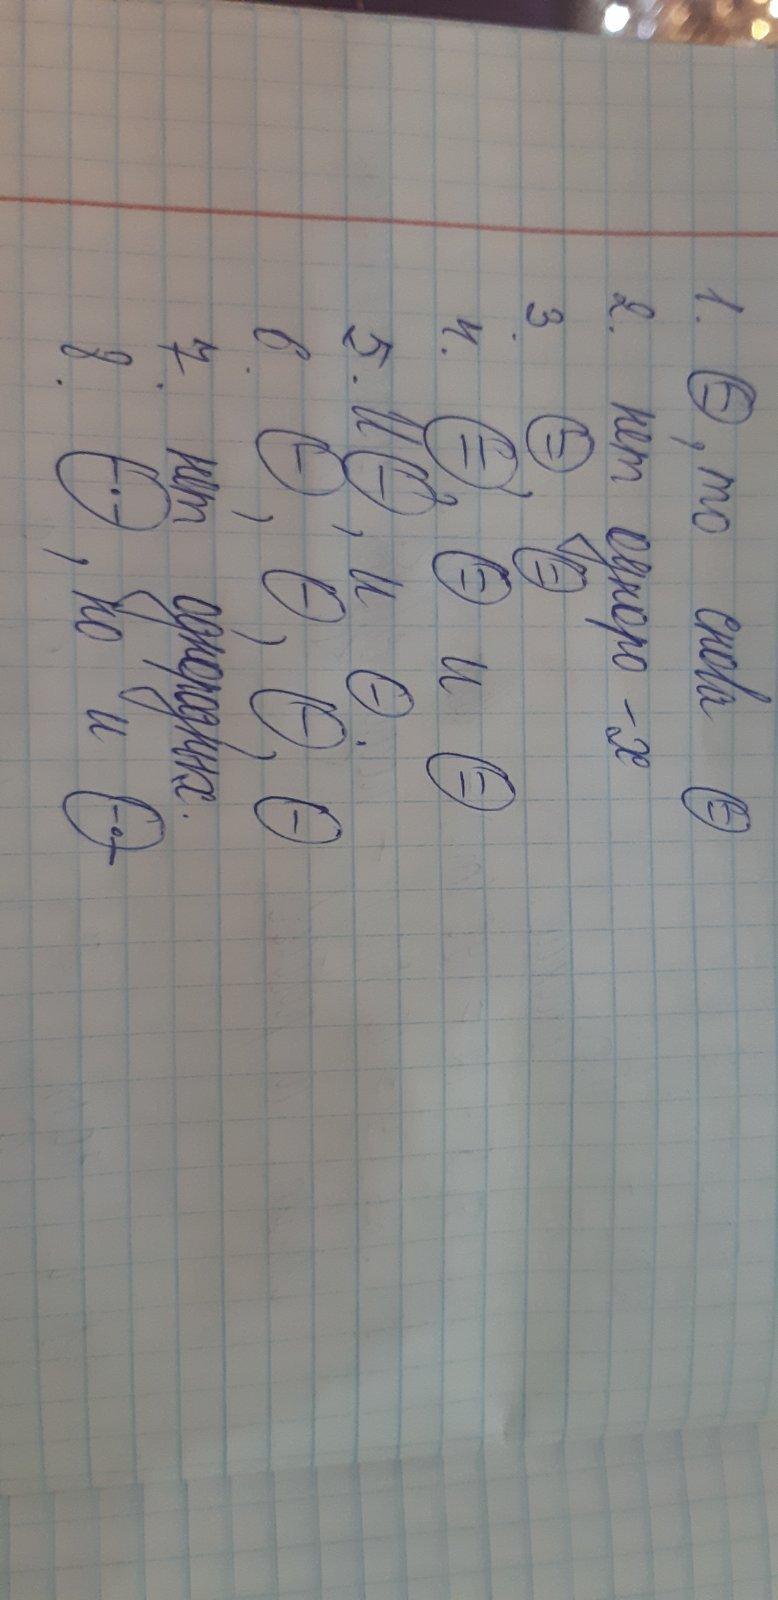 1. ⊖, то снова ⊖
2. нет одноро-х
3. ⊜, ⊜
4. ⊜, ⊜ и ⊜
5. И ⊖, и ⊖.
6. ⊖, ⊖, ⊖, ⊖
7. нет однородных.
8. ⊖, но и ⊖